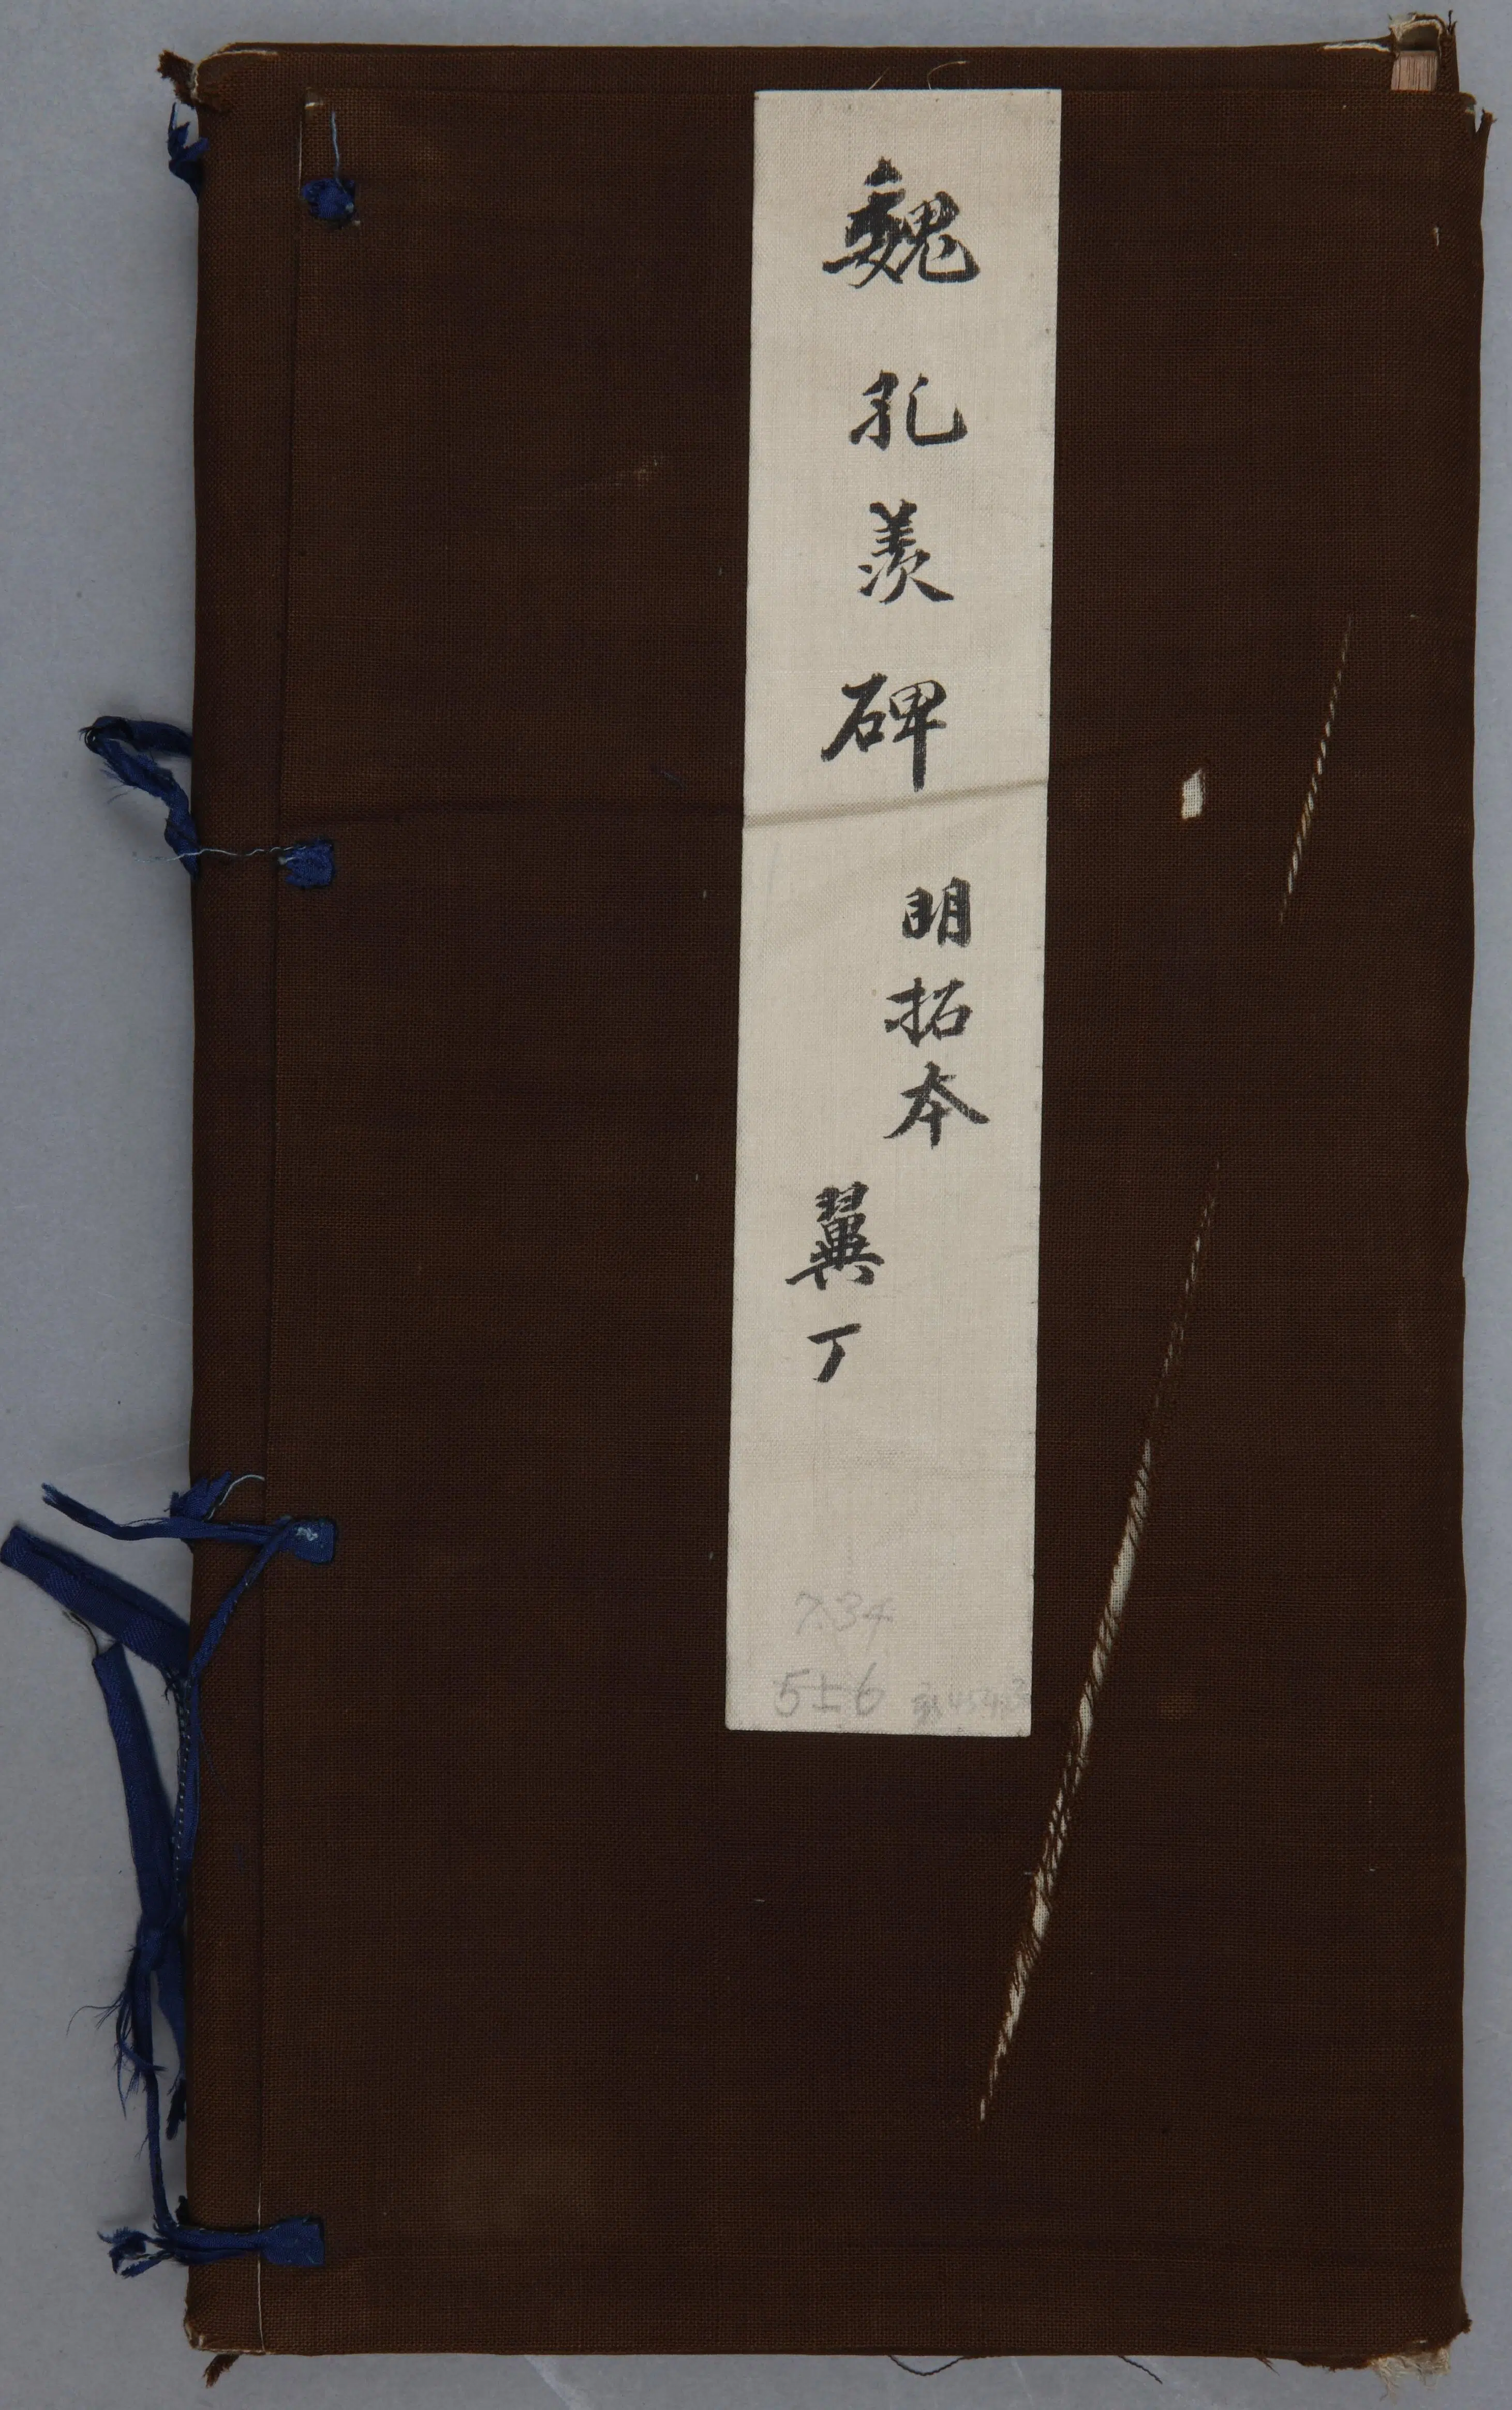 魏孔羨碑
明拓本
冀丁
7.34
556